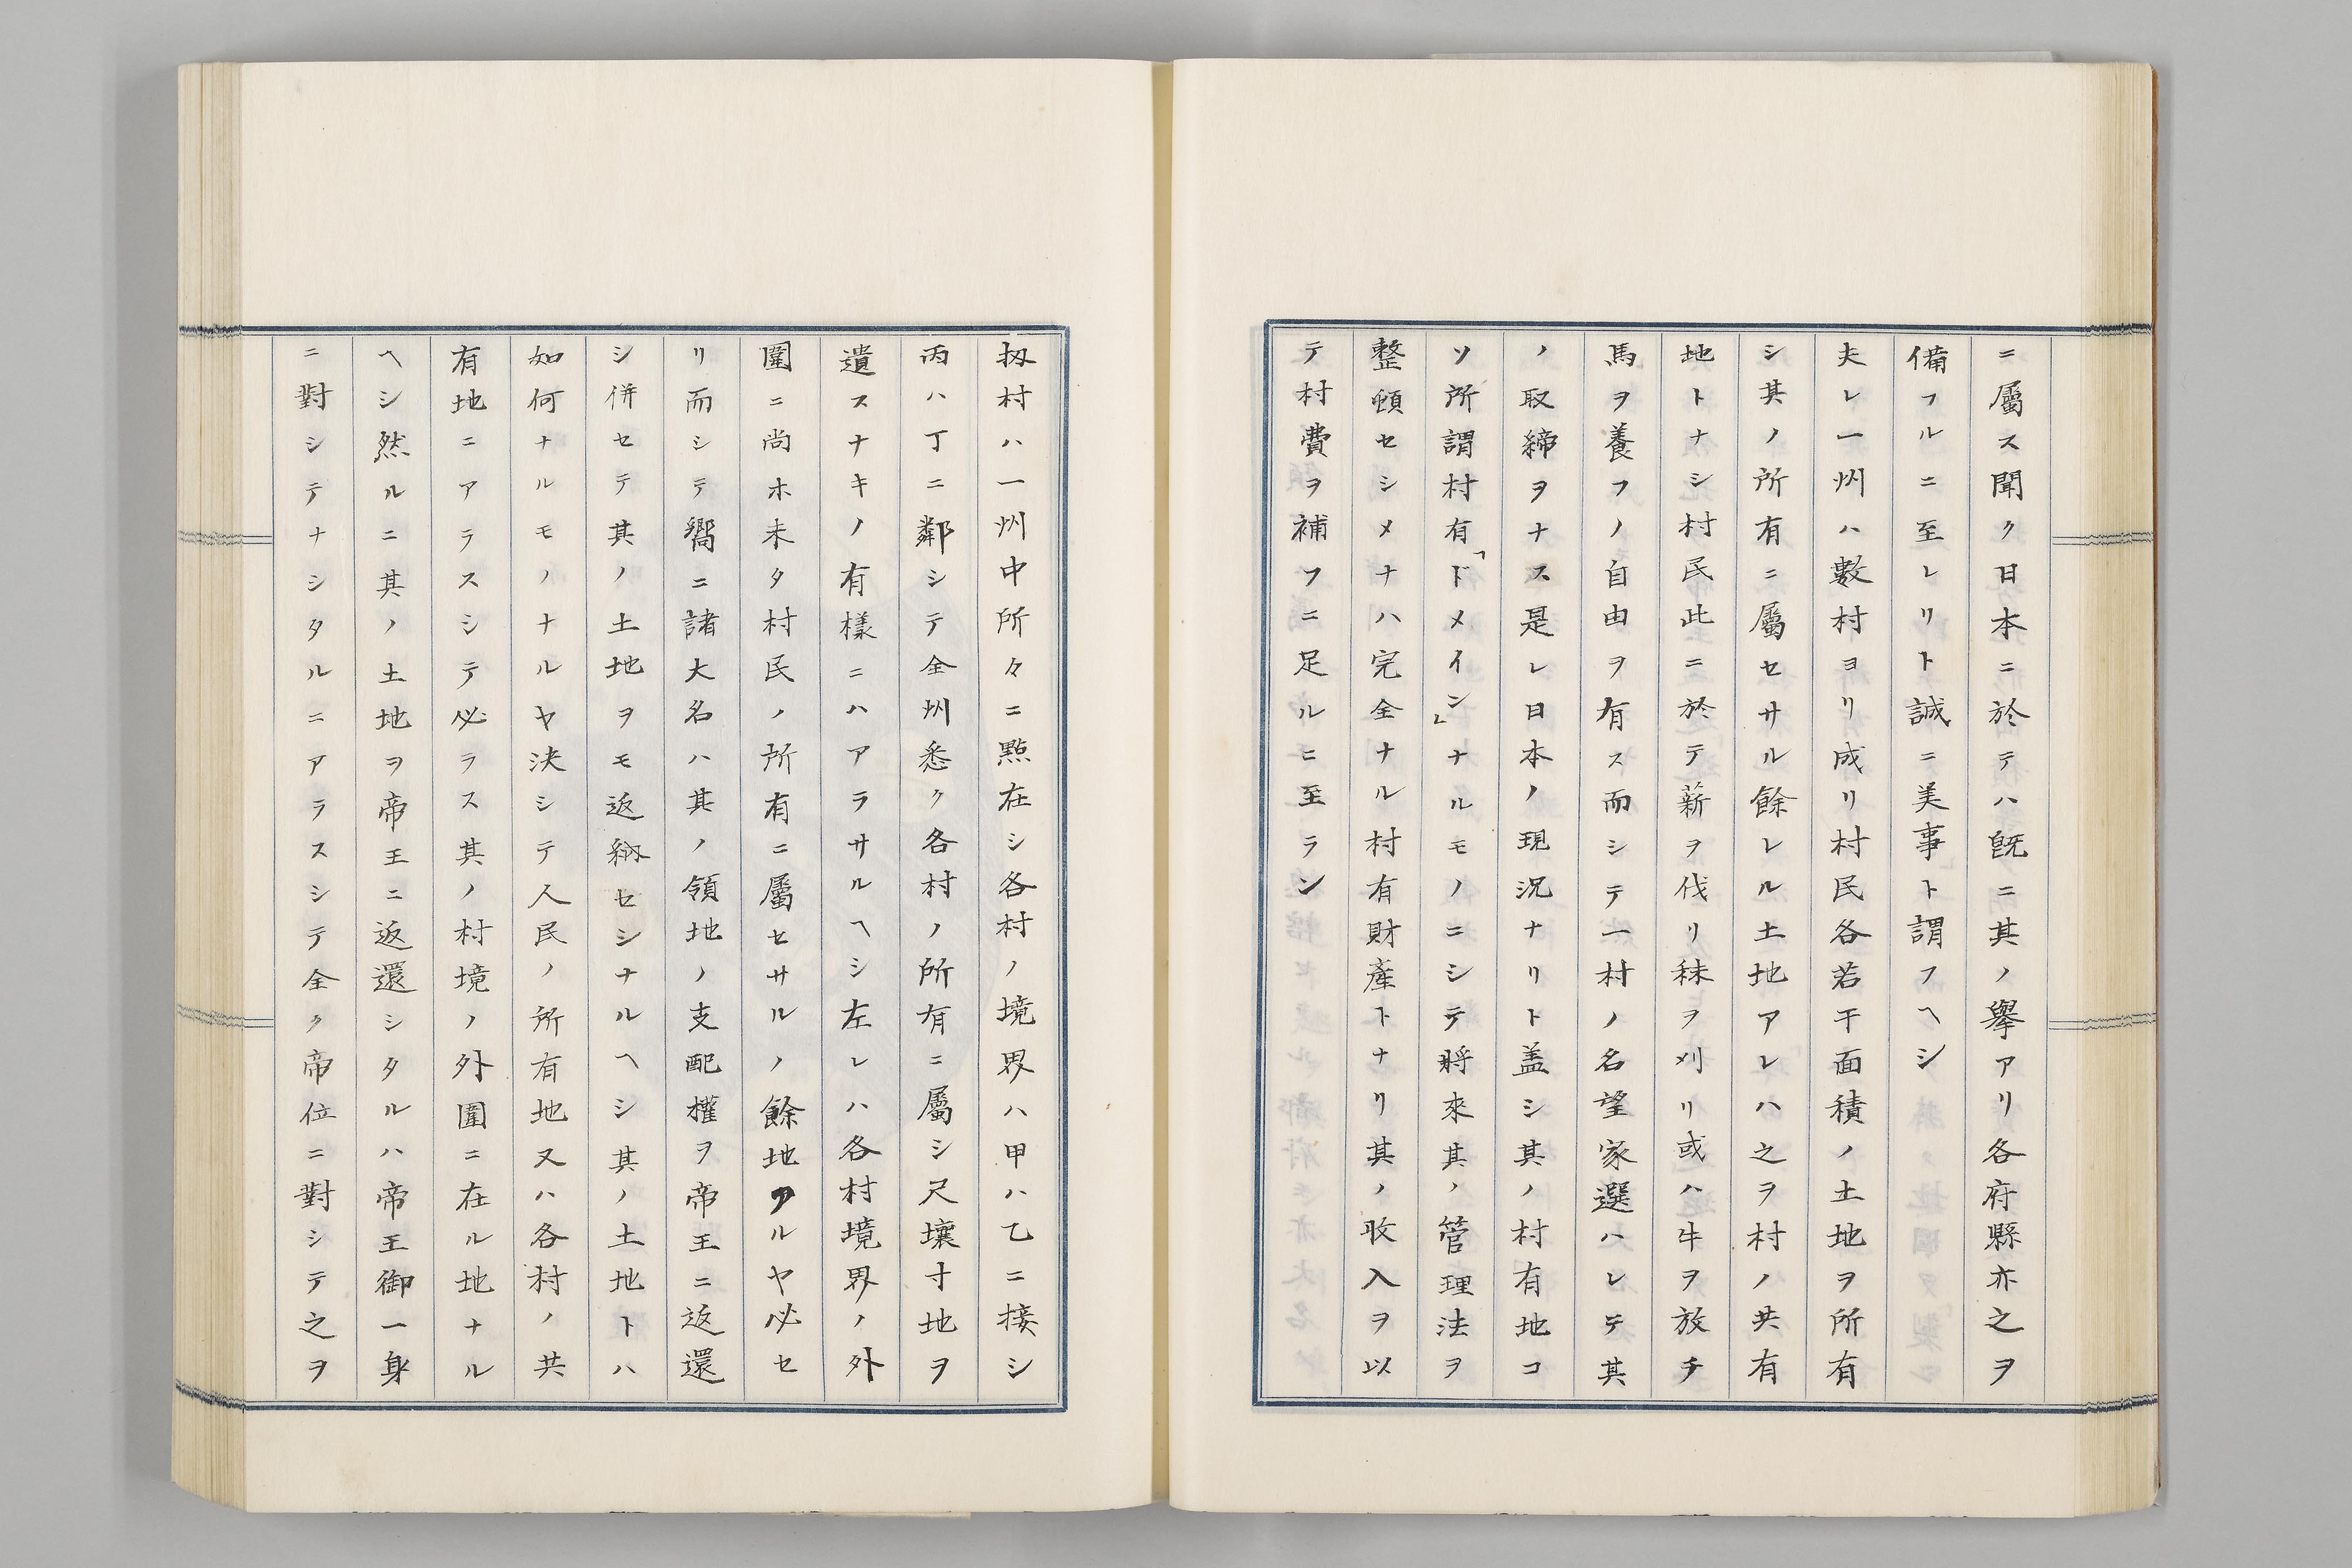 ニ屬ス聞ク日本ニ於テハ既ニ其ノ擧アリ各府縣亦之ヲ
備フルニ至レリト誠ニ美事ト謂フヘシ
夫レ一州ハ數村ヨリ成リ村民各若干面積ノ土地ヲ所有
シ其ノ所有ニ屬セサル餘レル土地アレハ之ヲ村ノ共有
地トナシ村民此ニ於テ薪ヲ伐リ秣ヲ刈リ或ハ牛ヲ放チ
馬ヲ養フノ自由ヲ有ス而シテ一村ノ名望家選ハレテ其
ノ取締ヲナス是レ日本ノ現況ナリト盖シ其ノ村有地コ
ソ所謂村有「ドメイン」ナルモノニシテ將來其ノ管理法ヲ
整頓セシメナハ完全ナル村有財産トナリ其ノ收入ヲ以
テ村費ヲ補フニ足ルニ至ラン
扨村ハ一州中所々ニ點在シ各村ノ境界ハ甲ハ乙ニ接シ
丙ハ丁ニ鄰シテ全州悉ク各村ノ所有ニ屬シ尺壤寸地ヲ
遺スナキノ有樣ニハアラサルヘシ左レハ各村境界ノ外
圍ニ尚ホ未タ村民ノ所有ニ屬セサルノ餘地アルヤ必セ
リ而シテ嚮ニ諸大名ハ其ノ領地ノ支配權ヲ帝王ニ返還
シ併セテ其ノ土地ヲモ返納セシナルヘシ其ノ土地トハ
如何ナルモノナルヤ決シテ人民ノ所有地又ハ各村ノ共
有地ニアラスシテ必ラス其ノ村境ノ外圍ニ在ル地ナル
ヘシ然ルニ其ノ土地ヲ帝王ニ返還シタルハ帝王御一身
ニ對シテナシタルニアラスシテ全ク帝位ニ對シテ之ヲ